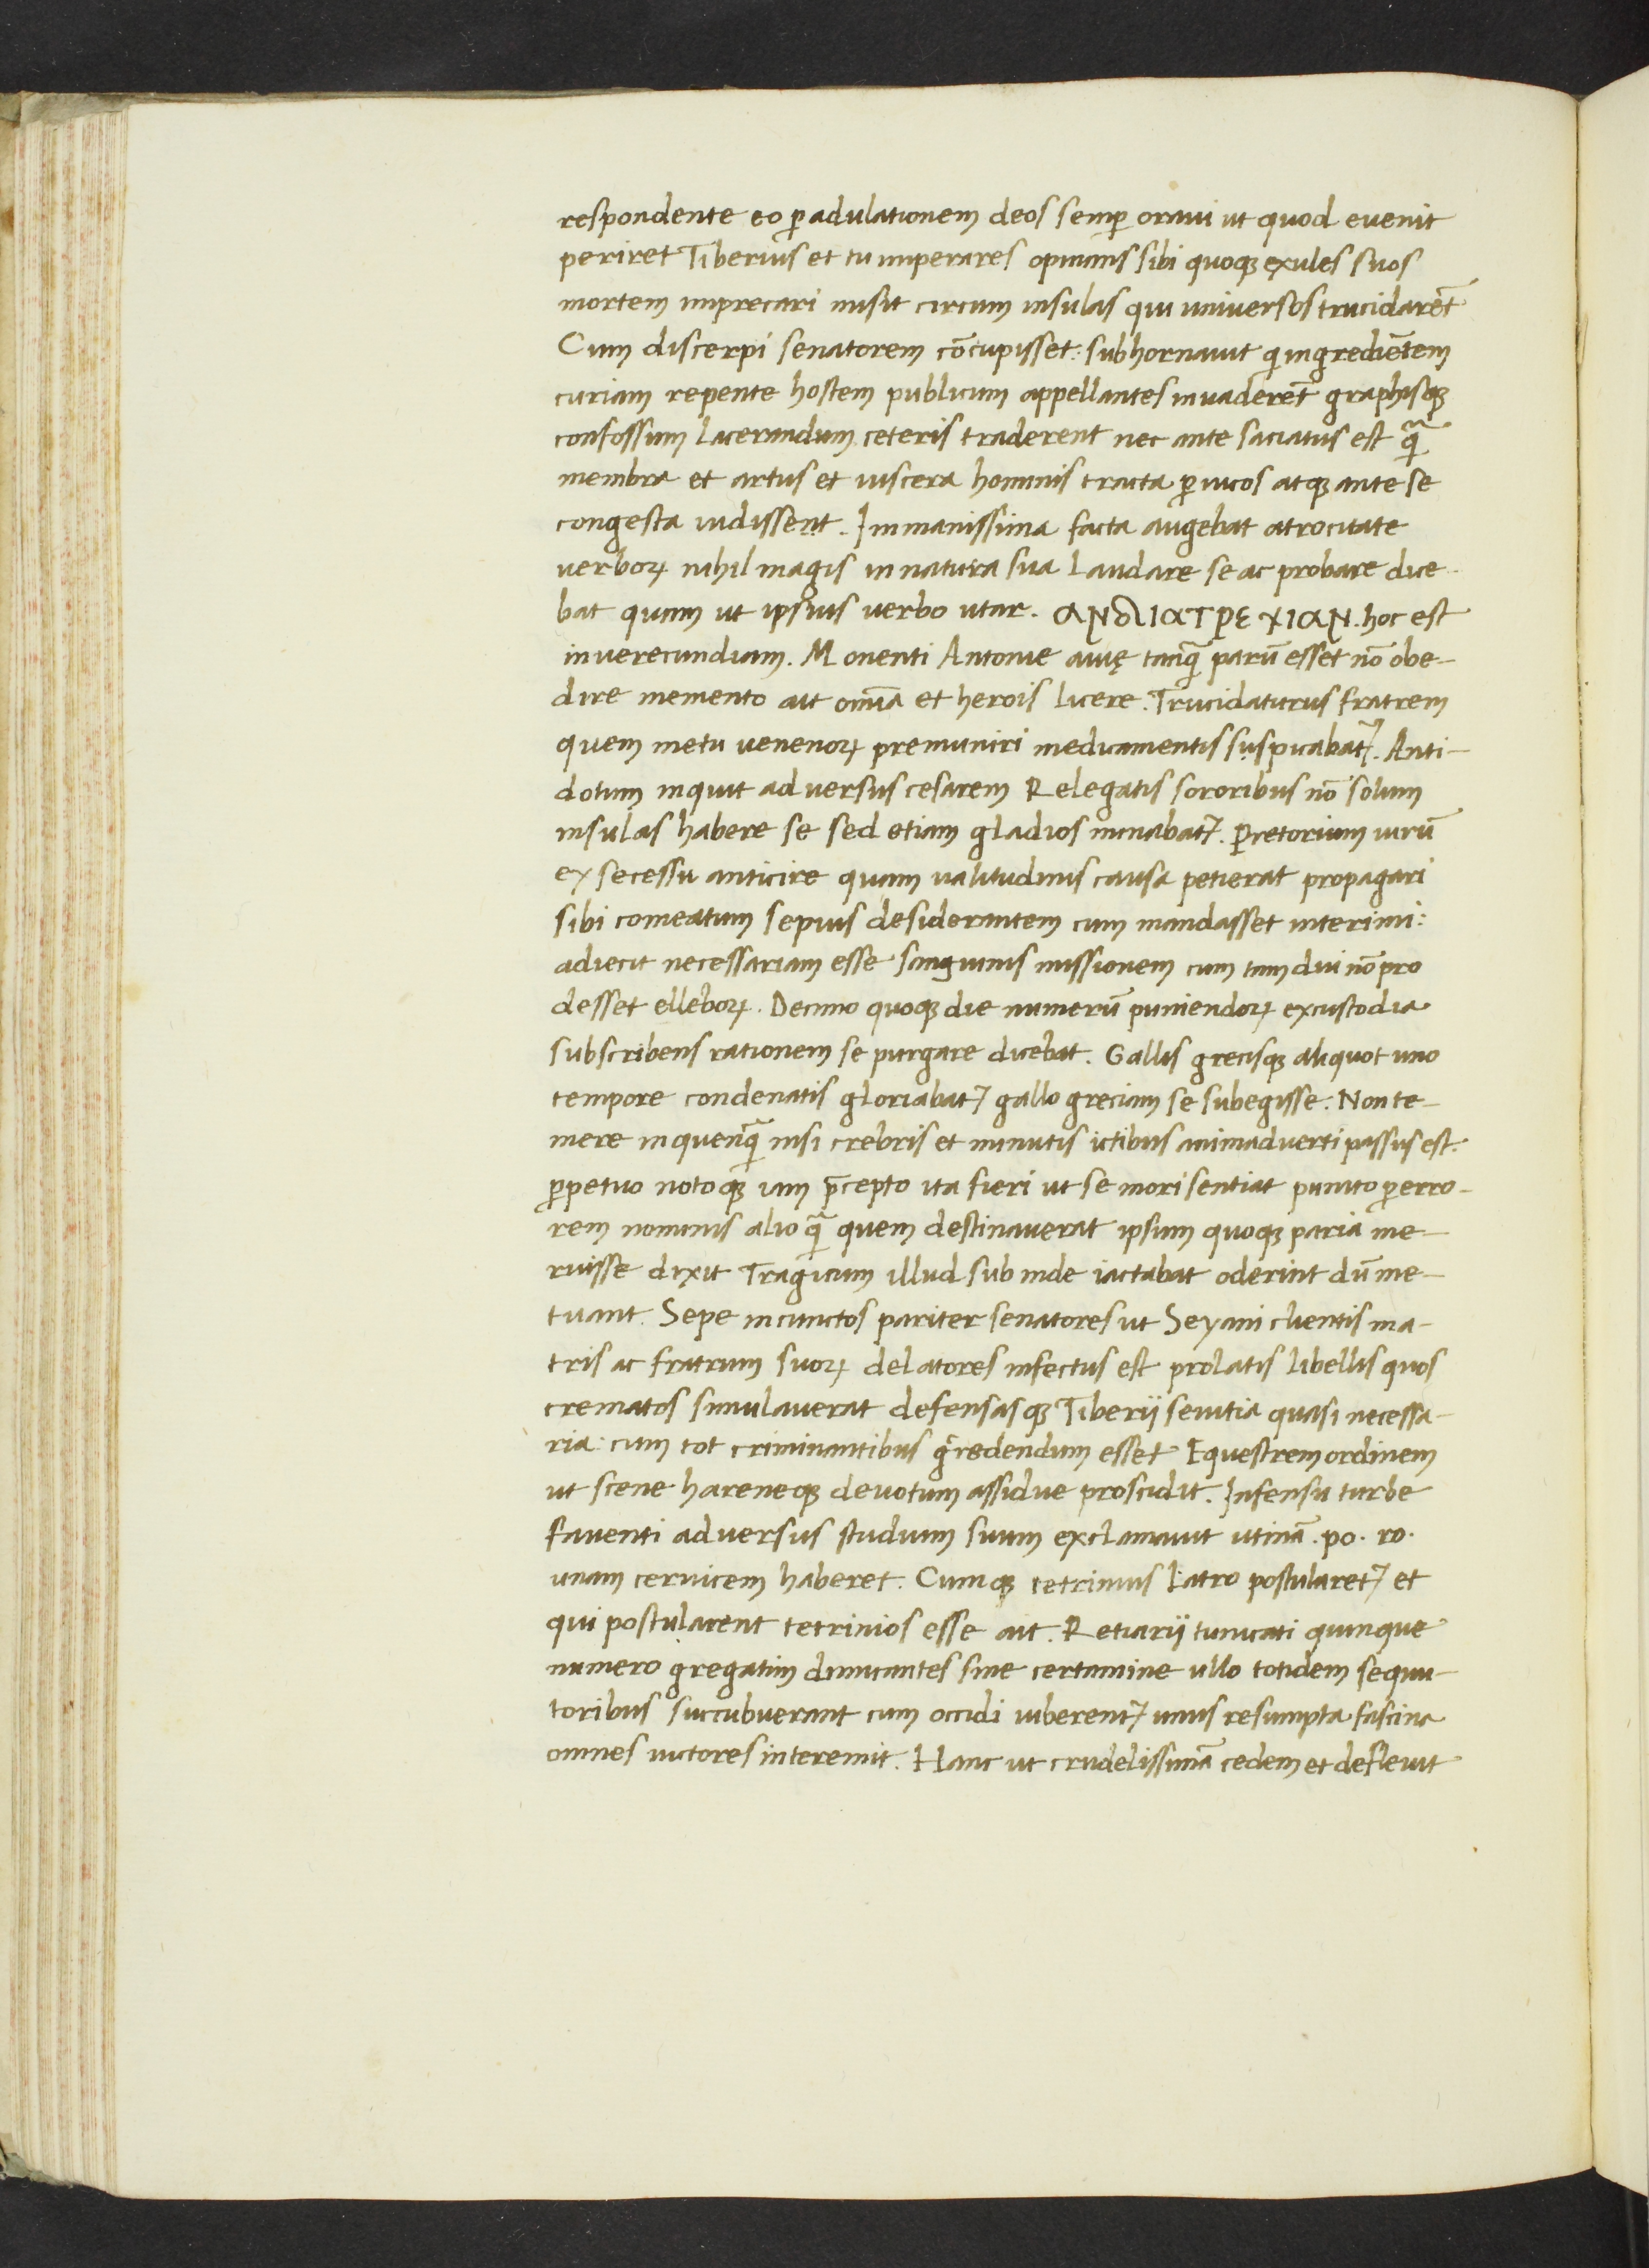 respondente eo ꝑ adulationem deos semꝑ oraui ut quod euenit
periret Tiberius et tu imperares opinans sibi quoqꝫ exules suos
mortem imprecari misit circum insulas qui universos trucidarẽt
Cum discerpi senatorem cõcupisset: subhornauit qi ingrediẽtem
curiam repente hostem publicum appellantes inuaderẽt graphisqꝫ
confossum lacerandum ceteris traderent nec ante saciatus est qᷓ
membra et artus et uiscera hominis tracta ꝑ uicos atqꝫ ante se
congesta uidissent. Immanissima facta augebat atrocitate
verboꝝ nihil magis in natura sua laudare se ac probare dice-
bat quam ut ipsius verbo utar. ΑΝΔΙΑΤΡΕΨΙΑΝ. hoc est
inverecundiam. Monenti Antonie auię tanqᷓ parũ esset nõ obe-
dire memento ait om̃ia et herois licere. Trucidaturus fratrem
quem metu uenenoꝝ premuniri medicamentis suspicabatᷣ. Anti-
dotum inquit adversus cesarem Relegatis sororibus nõ solum
insulas habere se sed etiam gladios minabatᷣ. Pretorium uirũ
ex secessu anticire quam ualitudinis causa petierat propagari
sibi comeatum sepius desiderantem cum mandasset interimi:
adiecit necessariam esse sanguinis missionem cum tam diu nõ pro
desset elleboꝝ. Decimo quoqꝫ die numerũ puniendoꝝ ex custodia
subscribens rationem se purgare dicebat. Gallis grecisqꝫ aliquot uno
tempore condenatis gloriabatᷣ gallo greciam se subegisse. Non te-
mere in quenqᷓ nisi crebris et minutis ictibus animadverti passus est:
ꝑpetuo notoqꝫ iam p̃cepto ita fieri ut se mori sentiat punito ꝑ erro-
rem nominis alio qᷓ quem destinauerat ipsum quoqꝫ paria me-
ruisse dixit Tragicum illud subinde iactabat oderint dũ me-
tuant. Sepe in cunctos pariter senatores ut Seyani clientis ma-
tris ac fratrum suoꝝ delatores infectus est prolatis libellis quos
crematos simulauerat defensasqꝫ Tiberij seuitia quasi necessa-
ria: cum tot criminantibus g̃redendum esset Equestrem ordinem
ut scene hareneqꝫ deuotum assidue proscidit. Infensu turbe
fauenti adversus studium suum exclamauit utinã. po. ro.
unam ceruicem haberet. Cumqꝫ tetrinius latro postularetᷣ et
qui postularent tetrinios esse ait. Retiarij tunicati quinque
numero gregatim dimicantes sine certamine ullo totidem sequu-
toribus succubuerant cum occidi iuberentᷣ unus resumpta fascina
omnes uictores interemit. Hanc ut crudelissimã cedem et defleuit